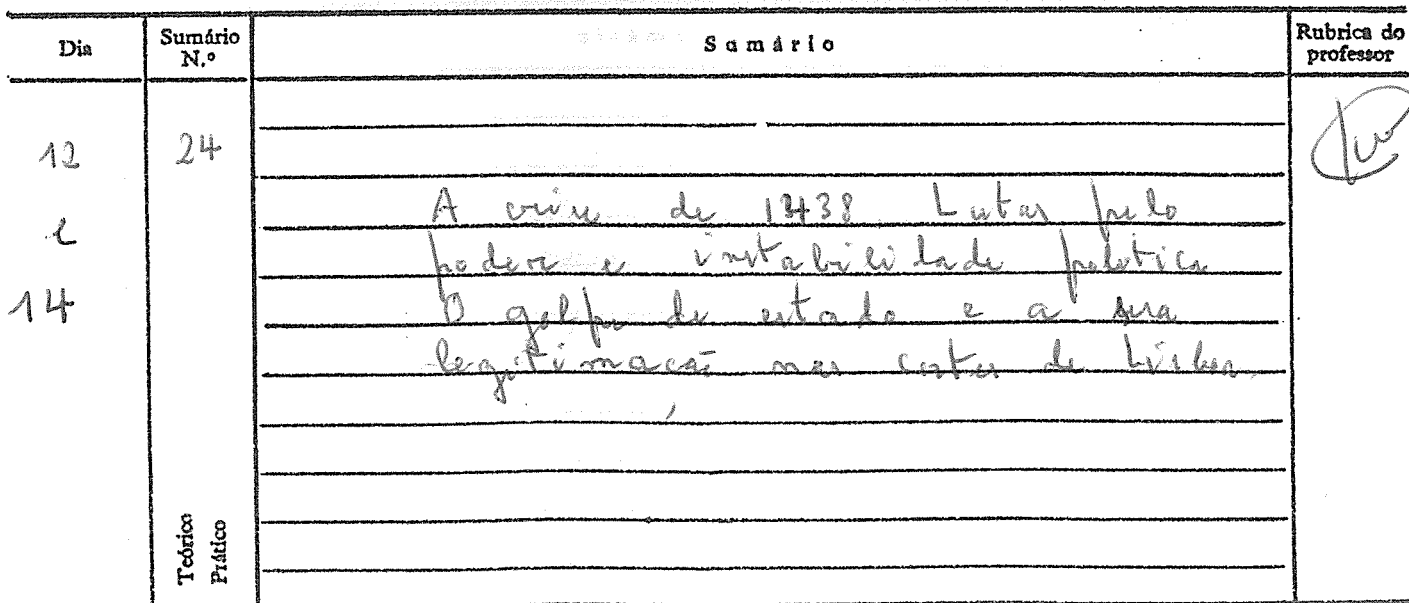 Dia Sumário N.º Sumário Rubrica do professor
12 24
A crise de 1438 Lutas pelo
e
poder e instabilidade politica
14
O golpe de estado e a sua
legitimação nas cortes de Lisboa.
Teórico
Prático